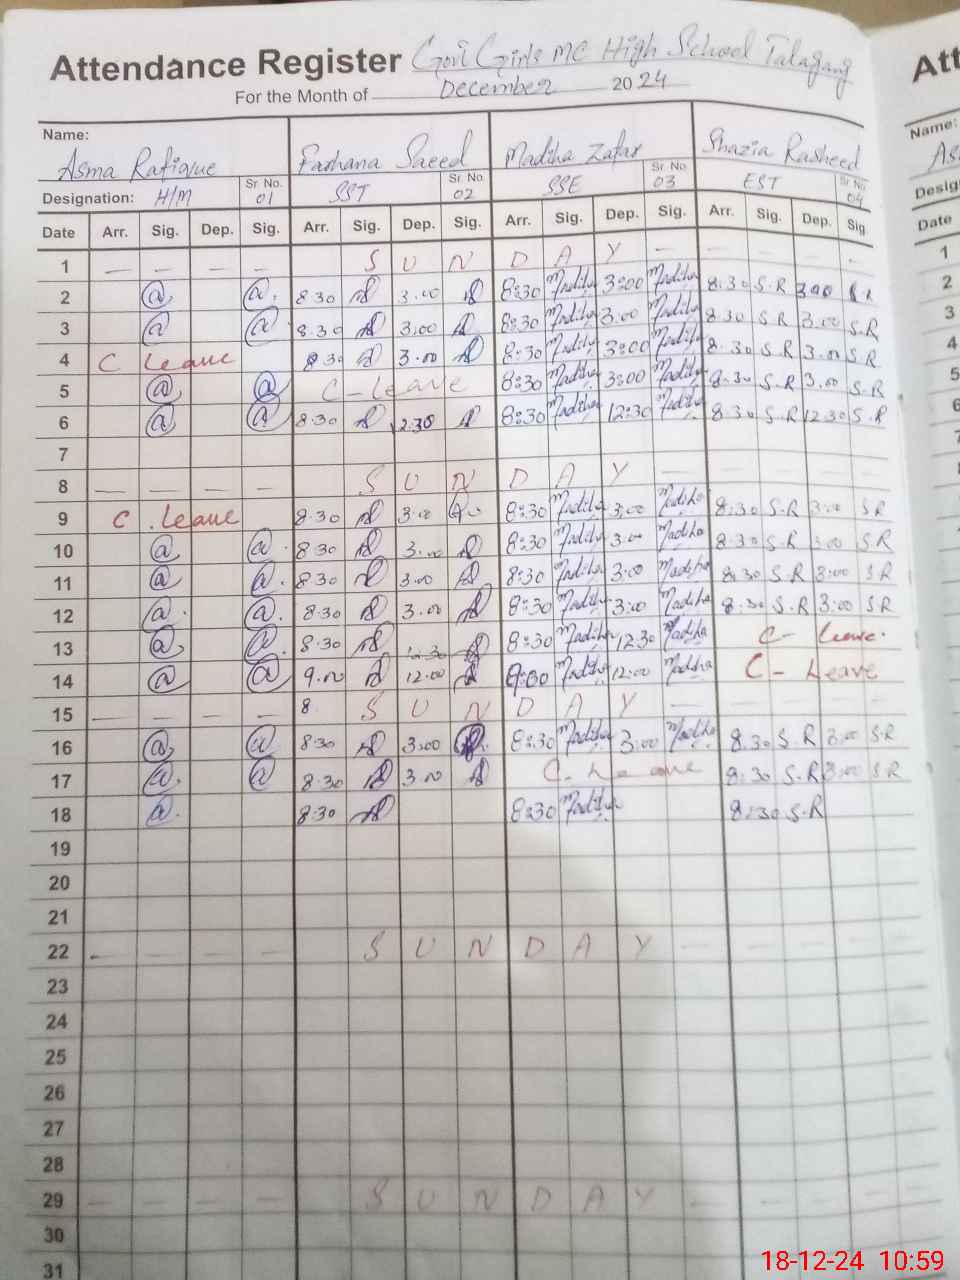 Attendance Register Govt Girls MC High School Talagang
For the Month of December 2024
Name: Asma Rafique Farhana Saeed Madiha Zafar Shazia Rasheed
Designation: H/M Sr. No. 01 SST Sr. No. 02 SSE Sr. No. 03 EST Sr. No. 04
Date Arr. Sig. Dep. Sig. Arr. Sig. Dep. Sig. Arr. Sig. Dep. Sig. Arr. Sig. Dep. Sig.
1 — — — — S U N D A Y — — — — —
2 8:30 3:00 8:30 Madiha 3:00 Madiha 8:30 S.R 3:00 S.R
3 8:30 3:00 8:30 Madiha 3:00 Madiha 8:30 S.R 3:00 S.R
4 C Leave 8:30 3:00 8:30 Madiha 3:00 Madiha 8:30 S.R 3:00 S.R
5 C-Leave 8:30 Madiha 3:00 Madiha 8:30 S.R 3:00 S.R
6 8:30 12:30 8:30 Madiha 12:30 Madiha 8:30 S.R 12:30 S.R
7
8 — — — — S U N D A Y — — — — —
9 C. Leave 8:30 3:00 8:30 Madiha 3:00 Madiha 8:30 S.R 3:00 S R
10 8:30 3:00 8:30 Madiha 3:00 Madiha 8:30 S.R 3:00 S R
11 8:30 3:00 8:30 Madiha 3:00 Madiha 8:30 S.R 3:00 S R
12 8:30 3:00 8:30 Madiha 3:00 Madiha 8:30 S.R 3:00 S.R
13 8:30 12:30 8:30 Madiha 12:30 Madiha C- Leave.
14 9:00 12:00 9:00 Madiha 12:00 Madiha C - Leave
15 — — — — 8 S U N D A Y — — — — —
16 8:30 3:00 8:30 Madiha 3:00 Madiha 8:30 S.R 3:00 S.R
17 8:30 3:00 C-Leave 8:30 S.R 3:00 S.R
18 8:30 8:30 Madiha 8:30 S.R
19
20
21
22 — — — — S U N D A Y — — — — —
23
24
25
26
27
28
29 — — — — S U N D A Y — — — — —
30
31
18-12-24 10:59
Att
Name:
As
Desig
Date
1
2
3
4
5
6